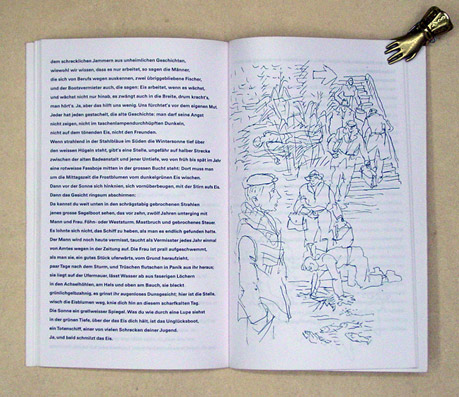 dem schrecklichen Jammern aus unheimlichen Geschichten,
wiewohl wir wissen, dass es nur arbeitet, so sagen die Männer,
die sich von Berufs wegen auskennen, zwei übriggebliebene Fischer,
und der Bootsvermieter auch, die sagen: Eis arbeitet, wenn es wächst,
und wächst nicht nur hinab, es zwängt auch in die Breite, drum kracht's,
man hört's. Ja, aber das hilft uns wenig. Uns fürchtet's vor dem eigenen Mut.
Jeder hat jeden gestachelt, die alte Geschichte: man darf seine Angst
nicht zeigen, nicht im taschenlampendurchhüpften Dunkeln,
nicht auf dem tönenden Eis, nicht den Freunden.
Wenn strahlend in der Stahlbläue im Süden die Wintersonne tief über
den weissen Hügeln steht, gibt's eine Stelle, ungefähr auf halber Strecke
zwischen der alten Badeanstalt und jener Untiefe, wo von früh bis spät im Jahr
eine rotweisse Fassboje mitten in der grossen Bucht steht: Dort muss man
um die Mittagszeit die Frostblumen vom dunkelgrünen Eis wischen.
Dann vor der Sonne sich hinknien, sich vornüberbeugen, mit der Stirn aufs Eis.
Dann das Gesicht ringsum abschirmen:
Da kannst du weit unten in den schrägstabig gebrochenen Strahlen
jenes grosse Segelboot sehen, das vor zehn, zwölf Jahren unterging mit
Mann und Frau. Föhn- oder Weststurm. Mastbruch und gebrochenes Steuer.
Es lohnte sich nicht, das Schiff zu heben, als man es endlich gefunden hatte.
Der Mann wird noch heute vermisst, taucht als Vermisster jedes Jahr einmal
von Amtes wegen in der Zeitung auf. Die Frau ist prall aufgeschwemmt,
als man sie, ein gutes Stück uferwärts, vom Grund heraufzieht,
paar Tage nach dem Sturm, und Trüschen flutschen in Panik aus ihr heraus:
sie liegt auf der Ufermauer, lässt Wasser ab aus faserigen Löchern
in den Achselhöhlen, am Hals und oben am Bauch, sie bleckt
grünlichgelbzahnig, es grinst ihr augenloses Dunsgesicht: hier ist die Stelle,
wisch die Eisblumen weg, knie dich hin an diesem scharfkalten Tag.
Die Sonne ein grellweisser Spiegel. Was du wie durch eine Lupe siehst
in der grünen Tiefe, über der das Eis dich hält, ist das Unglücksboot,
ein Totenschiff, einer von vielen Schrecken deiner Jugend.
Ja, und bald schmilzt das Eis.